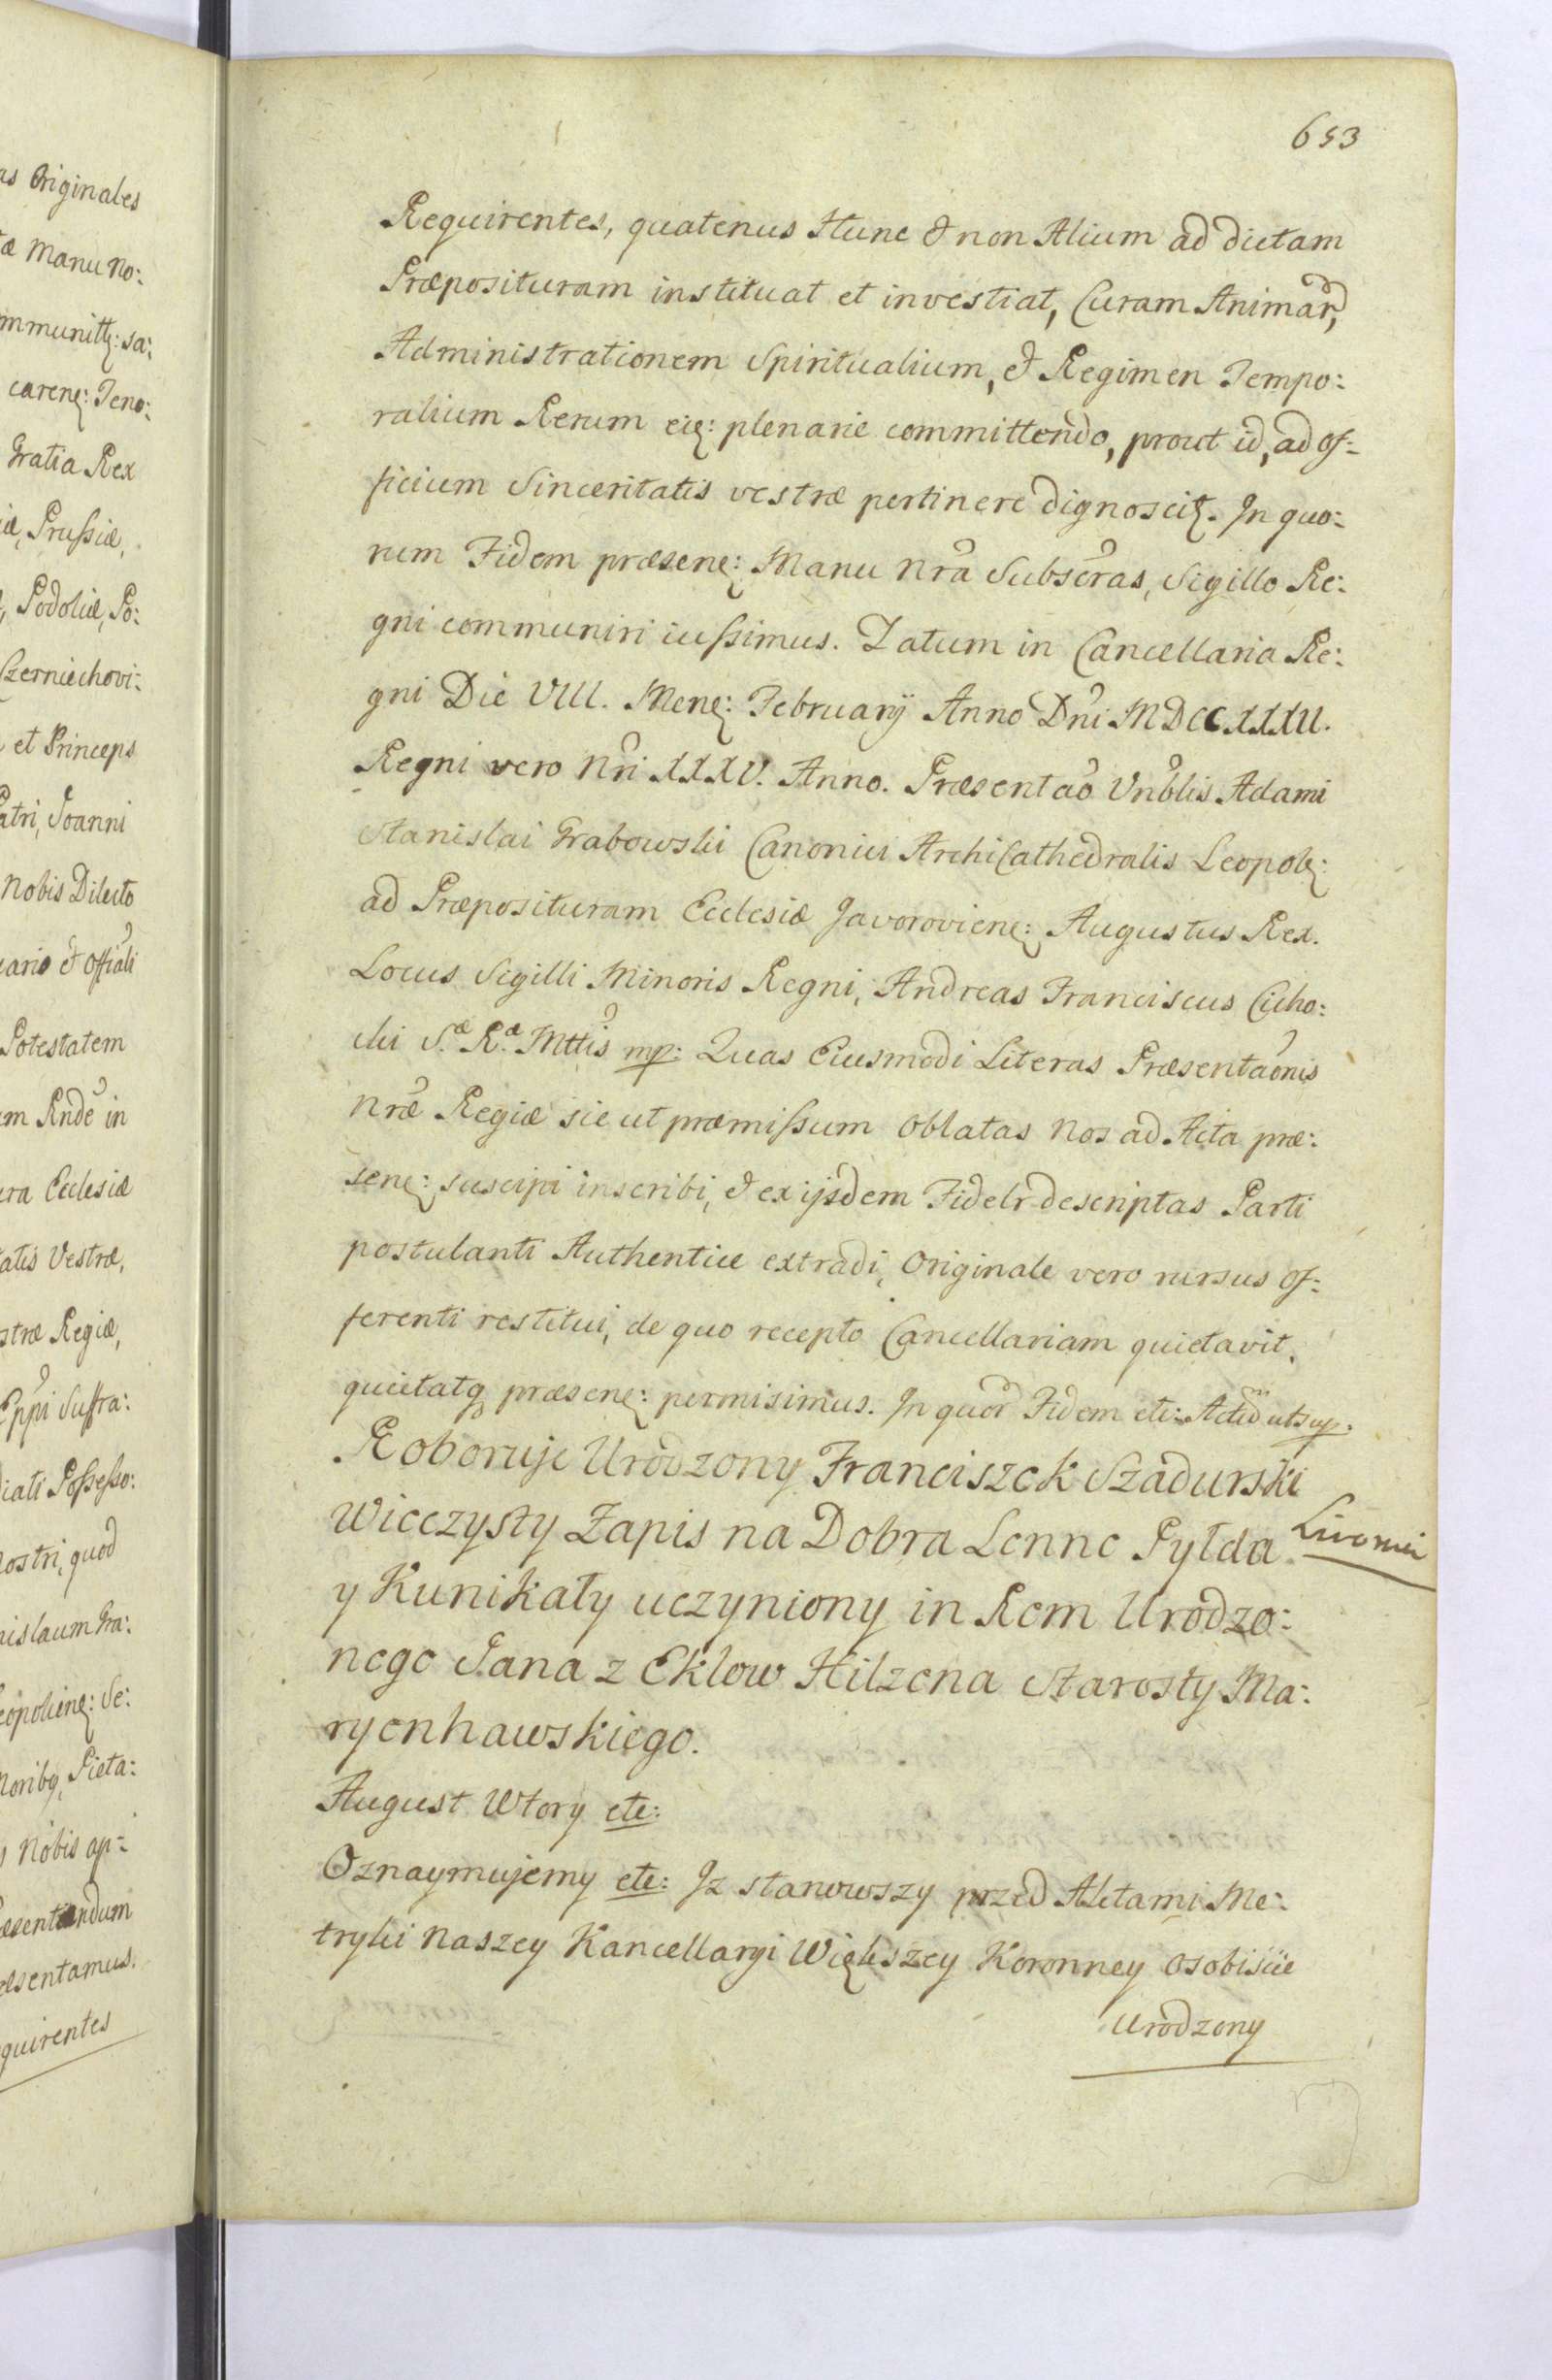 as Originales
æ Manu No:
mmunitt: sa:
caren: Teno:
Gratia Rex
iæ, Prussiæ,
, Podoliæ, Po:
Czerniechovi:
et Princeps
Patri, Joanni
Nobis Dilecto
cario & Offiali
Potestatem
em Rndê in
ura Ecclesiæ
atis Vestræ,
stræ Regiæ,
Eppi Suffra:
diati Possesso:
ostri, quod
nislaum Gra:
eopolien: Se:
Moribq, Pieta:
Nobis ap:
æsentandum
æsentamus.
quirentes
653
Requirentes, quatenus Hunc & non Alium ad dictam
Præposituram instituat et investiat, Curam Animar,
Administrationem Spiritualium, & Regimen Tempo:
ralium Rerum eiq: plenarie committendo, prout id, ad of:
ficium Sinceritatis vestræ pertinere dignoscit. In quo:
rum Fidem præsen: Manu Nra Subscras, Sigillo Re:
gni communiri iussimus. Datum in Cancellaria Re:
gni Die VIII. Men: February Anno Dni MDCCXXXII.
Regni vero Nri XXXV. Anno. Præsentao Vnblis Adami
Stanislai Grabowski Canonici ArchiCathedralis Leopol:
ad Præposituram Ecclesiæ Javorovien: Augustus Rex.
Locus Sigilli Minoris Regni, Andreas Franciscus Cicho:
cki S.æ R.æ Mttis mp: Quas Eiusmodi Literas Præsentaonis
Nræ Regiæ sic ut præmissum Oblatas Nos ad Acta præ:
sen: suscipi inscribi, & ex ijsdem Fidelr descriptas Parti
postulanti Authentice extradi, Originale vero rursus of:
ferenti restitui, de quo recepto Cancellariam quietavit,
quietatq præsen: permisimus. In quor Fidem etc: Actu utsup.
Roboruje Urodzony Franciszek Szadurski
Wieczysty Zapis na Dobra Lenne Pyłda
Livonici
y Kunikały uczyniony in Rem Urodzo:
nego Jana z Eklow Hilzena Starosty Ma:
ryenhawskiego.
August Wtory etc:
Oznaymujemy etc: Iz stanowszy przed Aktami Me:
tryki Naszey Kancellaryi Większey Koronney Osobiście
Urodzony